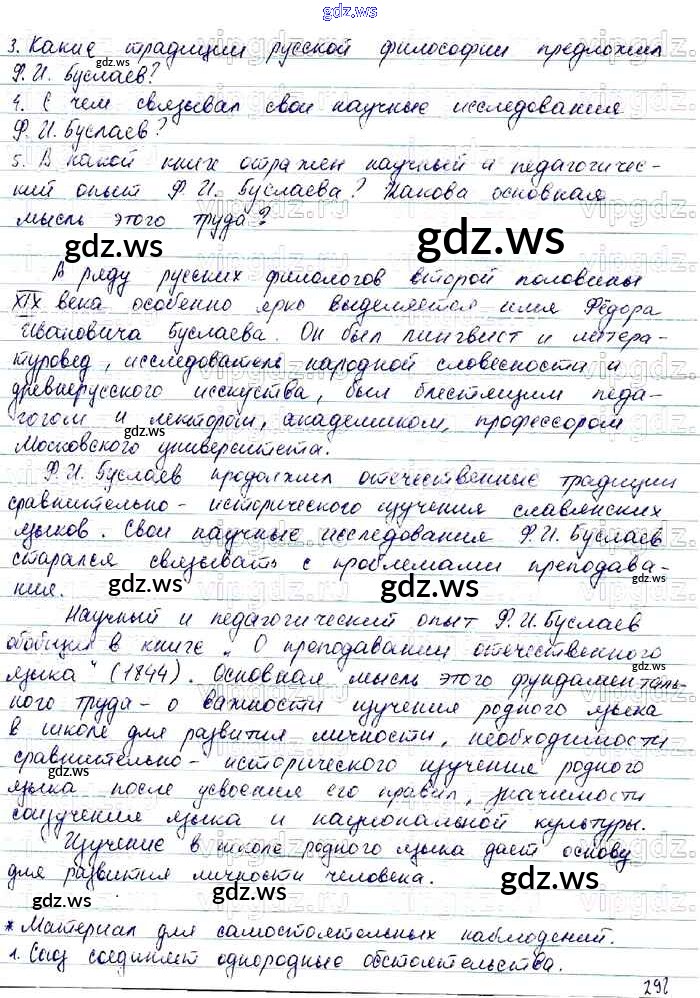 gdz.ws
3. Какие традиции русской философии предложил
Ф. И. Буслаев?
4. С чем связывал свои научные исследования
Ф. И. Буслаев?
5. В какой книге отражен научный и педагогичес-
кий опыт Ф. И. Буслаева? Какова основная
мысль этого труда?
В ряду русских филологов второй половины
XIX века особенно ярко выделяется имя Фёдора
Ивановича Буслаева. Он был лингвист и литера-
туровед, исследователь народной словесности и
древнерусского исскуства, был блестящим педа-
гогом и лектором, академиком, профессором
Московского университета.
Ф. И. Буслаев продолжил отечественные традиции
сравнительно - исторического изучения славянских
языков. Свои научные исследования Ф. И. Буслаев
старался связывать с проблемами преподава-
ния.
Научный и педагогический опыт Ф. И. Буслаев
обобщил в книге „О преподавании отечественного
языка" (1844). Основная мысль этого фундаменталь-
ного труда - о важности изучения родного языка
в школе для развития личности, необходимости
сравнительно - исторического изучения родного
языка после усвоения его правил, значимости
соизучения языка и национальной культуры.
Изучение в школе родного языка дает основу
для развития личности человека.
* Материал для самостоятельных наблюдений.
1. Союз соединяет однородные обстоятельства.
292